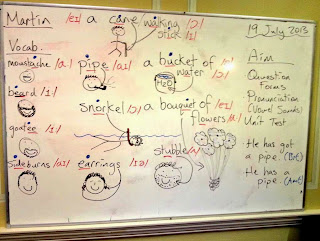 Martin /eɪ/ a cane walking stick /ɔː/ /ɪ/
19 July 2013
Vocab.
moustache /ɑː/ pipe /aɪ/ a bucket of water /ɔː/
H2O
beard /ɪə/
snorkel /ɔː/ a bouquet of /eɪ/
flowers
goatee /iː/
stubble /ʌ/
sideburns /aɪ/ earrings /ɪə/
Aim
Question
Forms
Pronunciation
(Vowel Sounds)
Unit Test
He has got
a pipe. (BrE)
He has a
pipe. (AmE)